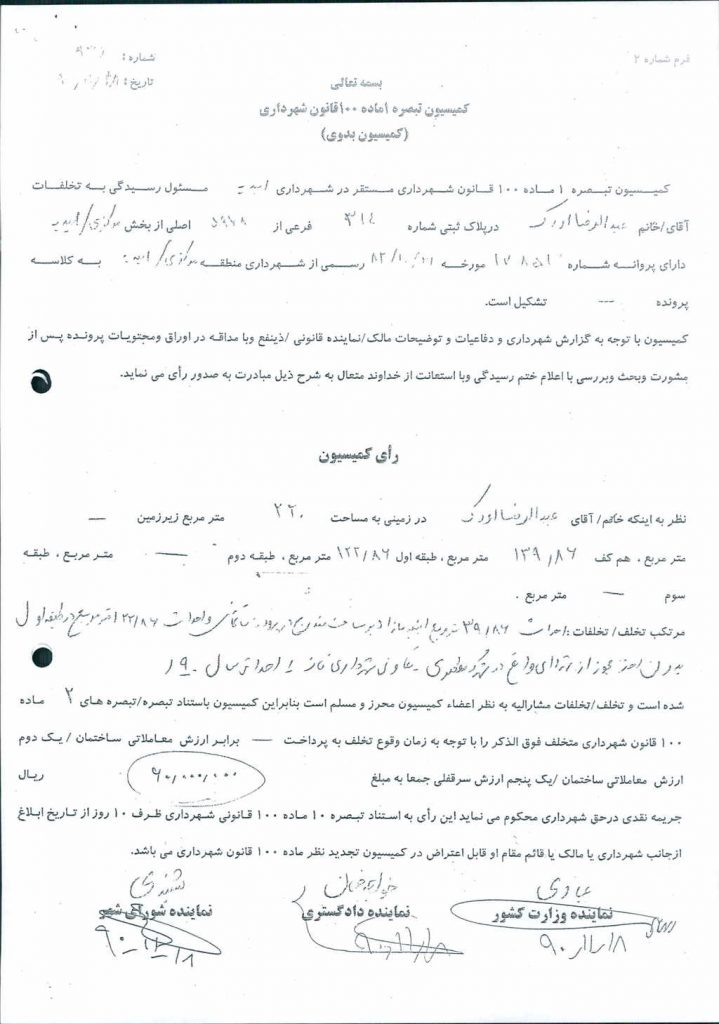 فرم شماره ۲
شماره :
تاریخ :
بسمه تعالی
کمیسیون تبصره ۱ماده ۱۰۰قانون شهرداری
(کمیسیون بدوی)
کمیسیون تبصره ۱ ماده ۱۰۰ قانون شهرداری مستقر در شهرداری امیدیه مسئول رسیدگی به تخلفات
آقای/خانم عبدالرضا اورک درپلاک ثبتی شماره ۳۱۴ فرعی از اصلی از بخش مرکزی/امیدیه
دارای پروانه شماره مورخه رسمی از شهرداری منطقه مرکزی/امیدیه به کلاسه
پرونده — تشکیل است.
کمیسیون با توجه به گزارش شهرداری و دفاعیات و توضیحات مالک/نماینده قانونی /ذینفع وبا مداقه در اوراق ومحتویات پرونده پس از
مشورت وبحث وبررسی با اعلام ختم رسیدگی وبا استعانت از خداوند متعال به شرح ذیل مبادرت به صدور رأی می نماید.
رأی کمیسیون
نظر به اینکه خانم/ آقای عبدالرضا اورک در زمینی به مساحت ۲۲۰ متر مربع زیرزمین —
متر مربع . هم کف ۱۳۹/۸۶ متر مربع ، طبقه اول ۱۲۲/۸۶ متر مربع ، طبقه دوم — متر مربع . طبقه
سوم — متر مربع .
مرتکب تخلف/ تخلفات : احداث ۳۹/۸۶ متر مربع مازاد بر مساحت مندرج در پروانه ساختمانی و احداث ۱۲۲/۸۶ متر مربع در طبقه اول
بدون اخذ مجوز از شهرداری واقع در سال ۹۰
شده است و تخلف/تخلفات مشارالیه به نظر اعضاء کمیسیون محرز و مسلم است بنابراین کمیسیون باستناد تبصره/تبصره های ۲ ماده
۱۰۰ قانون شهرداری متخلف فوق الذکر را با توجه به زمان وقوع تخلف به پرداخت — برابر ارزش معاملاتی ساختمان / یک دوم
ارزش معاملاتی ساختمان /یک پنجم ارزش سرقفلی جمعا به مبلغ ۶۰,۰۰۰,۰۰۰ ریال
جریمه نقدی درحق شهرداری محکوم می نماید این رأی به استناد تبصره ۱۰ ماده ۱۰۰ قانونی شهرداری ظرف ۱۰ روز از تاریخ ابلاغ
ازجانب شهرداری یا مالک یا قائم مقام او قابل اعتراض در کمیسیون تجدید نظر ماده ۱۰۰ قانون شهرداری می باشد.
عبادی
نماینده وزارت کشور نماینده دادگستری نماینده شورای شهر